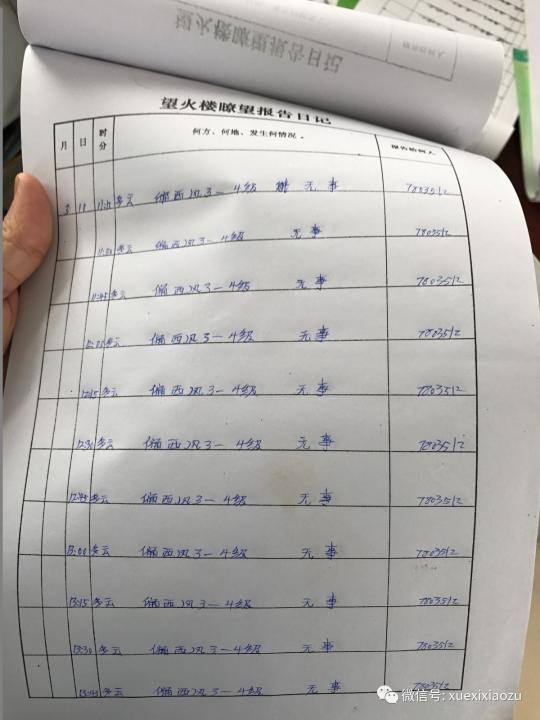 望火楼瞭望报告日记
望火楼瞭望报告日记
月 日 时分 何方、何地、发生何情况。 报告给何人
3 11 多云 偏西风3一4级 无事 7803512
多云 偏西风3一4级 无事 7803512
11:45 多云 偏西风3一4级 无事 7803512
12:00 多云 偏西风3一4级 无事 7803512
12:15 多云 偏西风3一4级 无事 7803512
12:30 多云 偏西风3一4级 无事 7803512
12:45 多云 偏西风3一4级 无事 7803512
13:00 多云 偏西风3一4级 无事 7803512
13:15 多云 偏西风3一4级 无事 7803512
13:30 多云 偏西风3一4级 无事 7803512
13:45 多云 偏西风3一4级 无事 7803512
微信号: xuexixiaozu